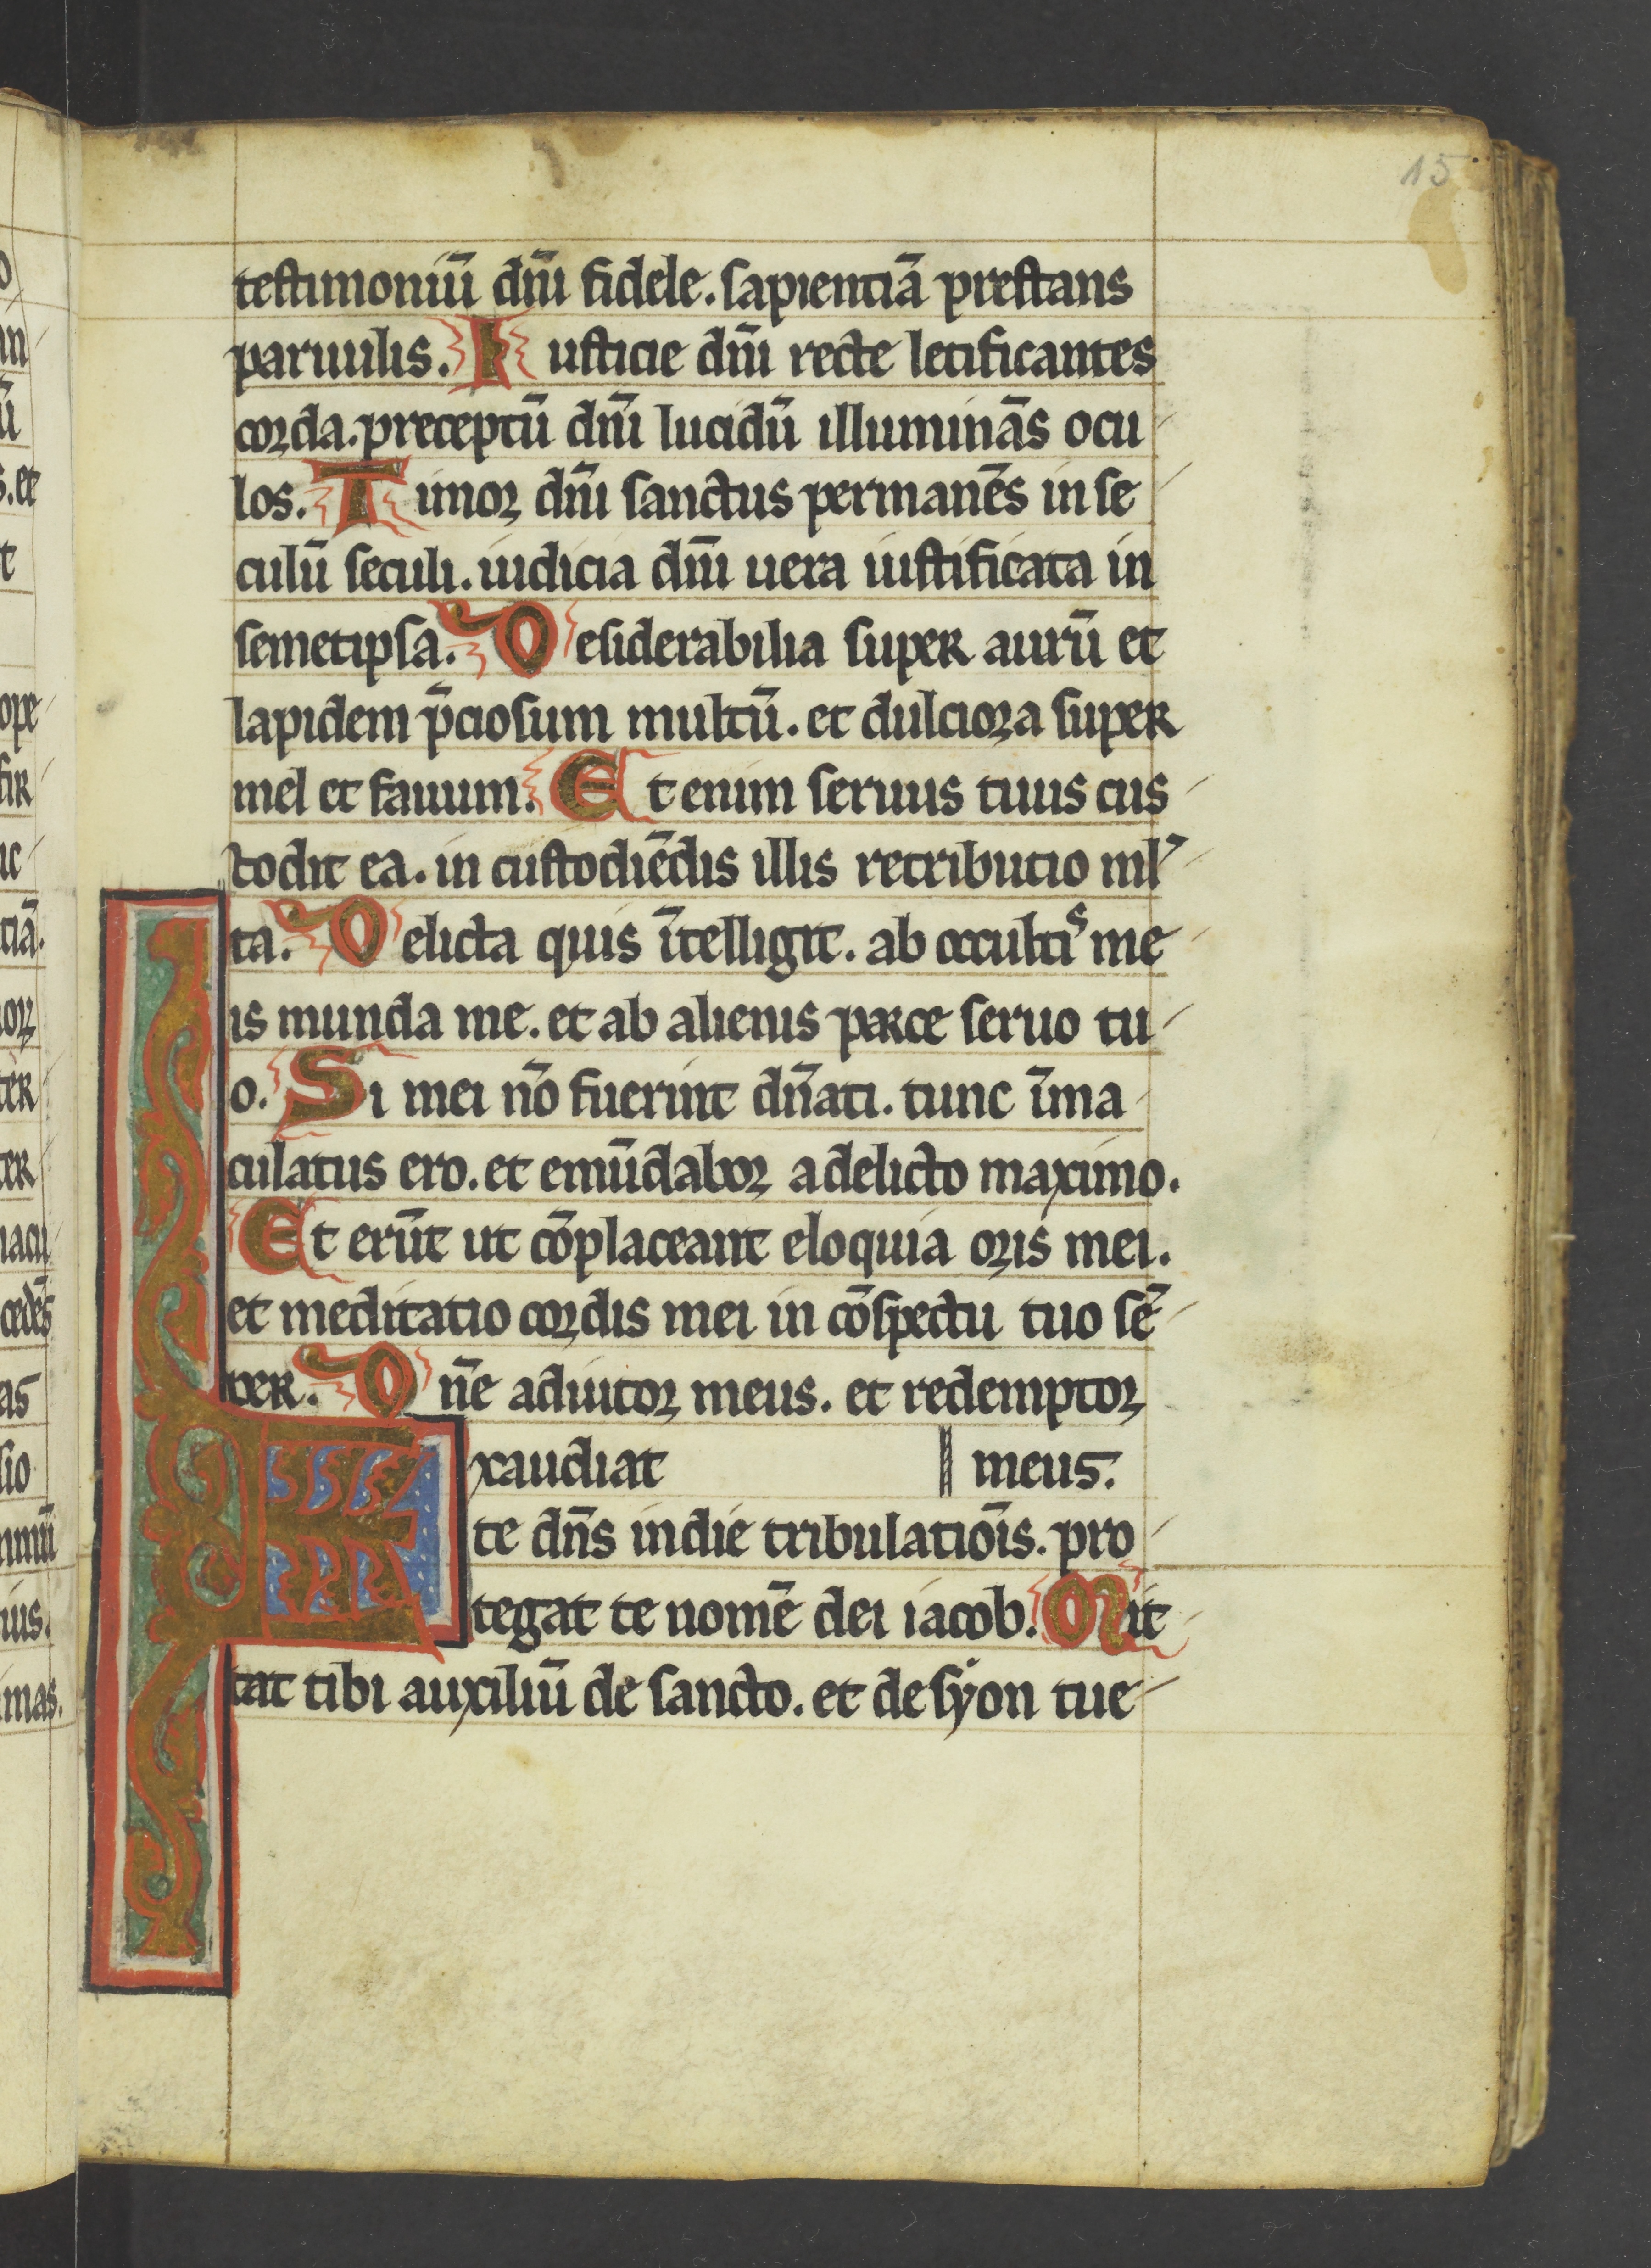 15
testimoniū dn̄i fidele. sapientiā prestans
paruulis. Iusticie dn̄i recte letificantes
corda. preceptū dn̄i lucidū illuminās ocu
los. Timor dn̄i sanctus permanēs in se
culū seculi. iudicia dn̄i uera iustificata in
semetipsa. Desiderabilia super aurū et
lapidem p̄ciosum multū. et dulciora super
mel et fauum. Et enim seruus tuus cus
todit ea. in custodiēdis illis retributio ml̓
ta. Delicta quis ītelligit. ab occultis me
is munda me. et ab alienis parce seruo tu
o. Si mei nō fuerint dn̄ati. tunc īma
culatus ero. et emūdabor a delicto maximo.
Et erūt ut cōplaceant eloquia oris mei.
et meditatio cordis mei in cōspectu tuo sē
per. Dn̄e adiutor meus. et redemptor
meus.
Exaudiat
te dn̄s in die tribulatiōis. pro
tegat te nomē dei iacob. Mit
tat tibi auxiliū de sancto. et de syon tue